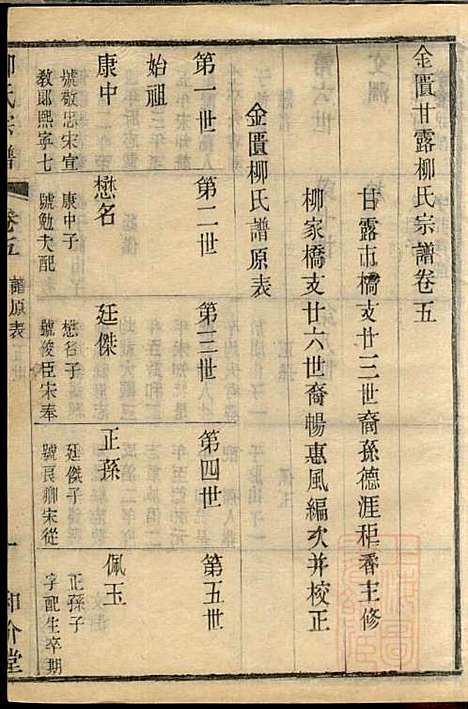 金匱甘露柳氏宗譜卷五
甘露市橋支廿三世裔孫德涯秬香主修
柳家橋支廿六世裔暢惠風編次并校正
金匱柳氏譜原表
第一世 第二世 第三世 第四世 第五世
始祖
康中 懋名 廷傑 正孫 佩玉
號敬忠宋宣 康中子 懋名子 廷傑子 正孫子
教郎熙寧七 號勉夫配 號俊臣宋奉 號良卿宋從 字配生卒期
柳氏宗譜 卷五 譜原表 一